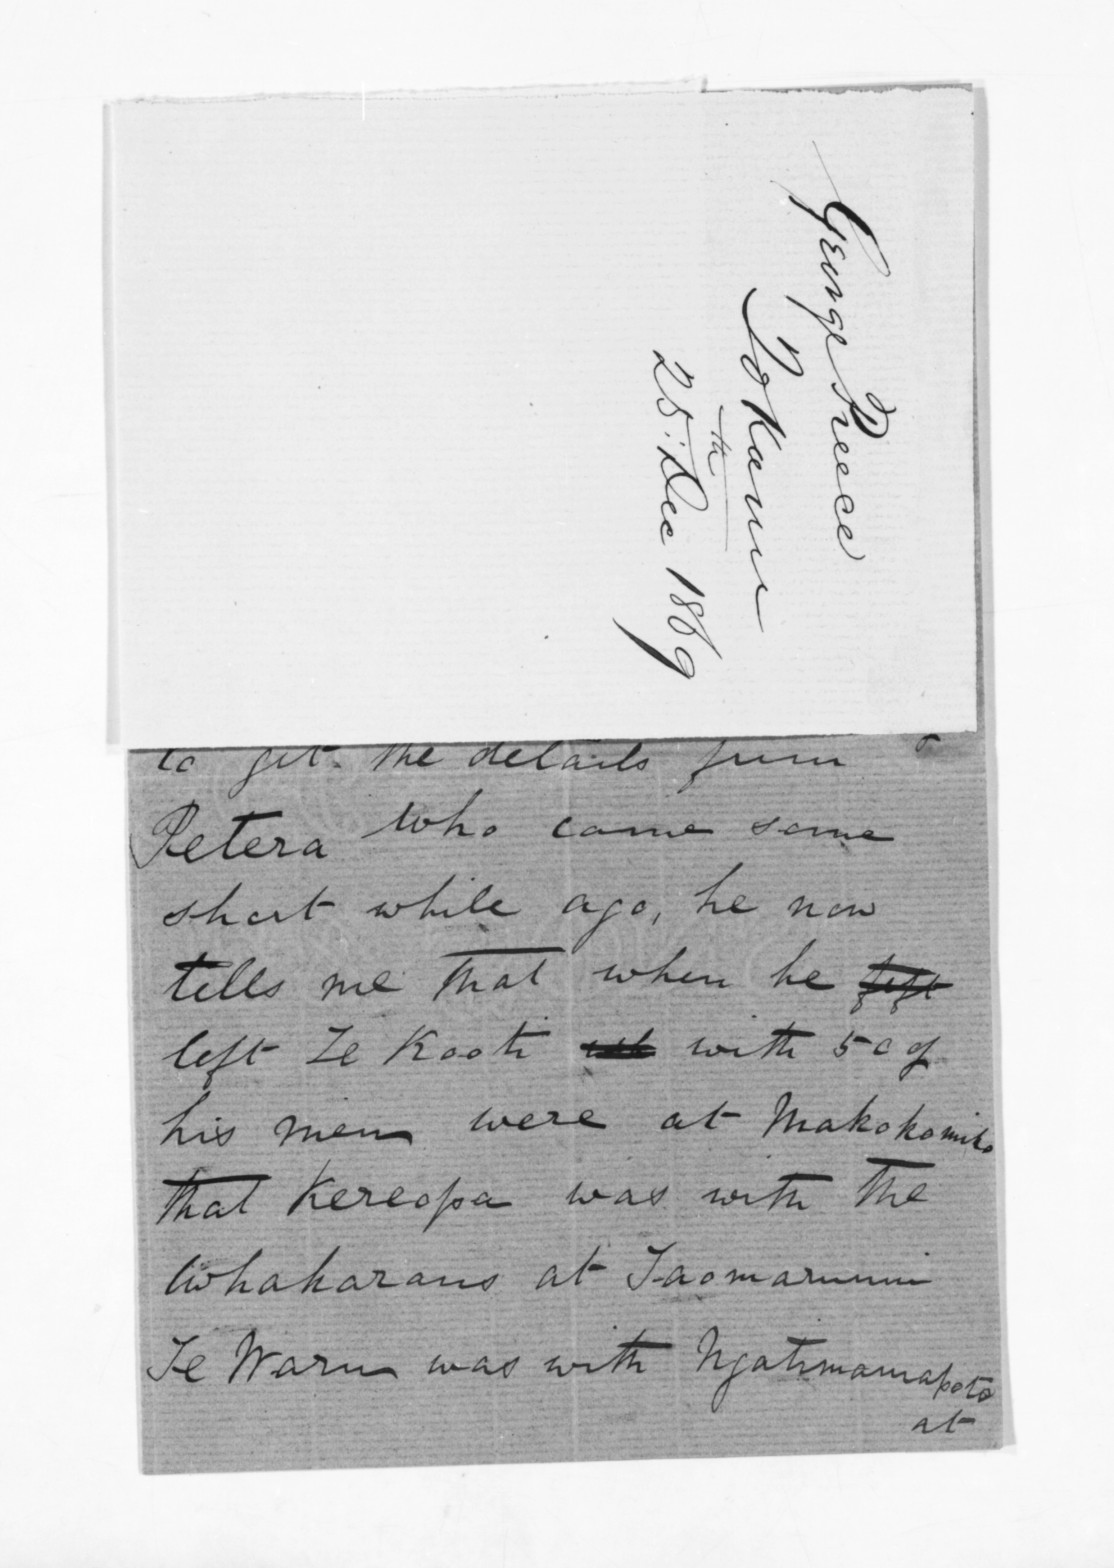 George Preece
Tokanu
25th Dec 1869
to get the details from
Petera who came some
short while ago, he now
tells me that when he left
left Te Kooti with 50 of
his men were at Makokomiko
that Kereopa was with the
Whakaraus at Taomarunui
Te Waru was with Ngatimaniapoto
at